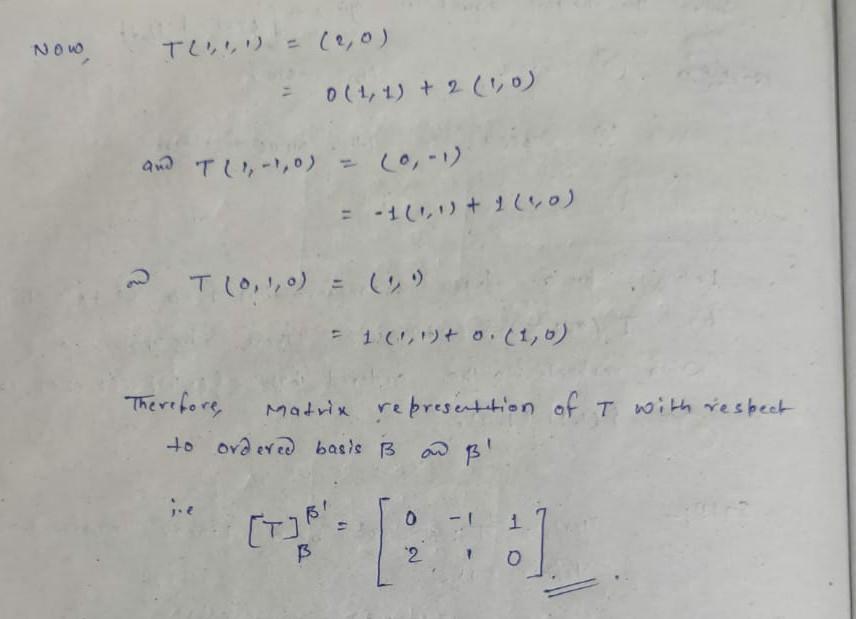 Now, T(1,1,1) = (2,0)
= 0(1,1) + 2(1,0)
and T(1,-1,0) = (0,-1)
= -1(1,1) + 1(1,0)
T(0,1,0) = (1,1)
= 1.(1,1) + 0.(1,0)
Therefore, Matrix representation of T with respect
to ordered basis B β'
i.e [T]_β^β' = [ 0 -1 1
2 1 0 ].